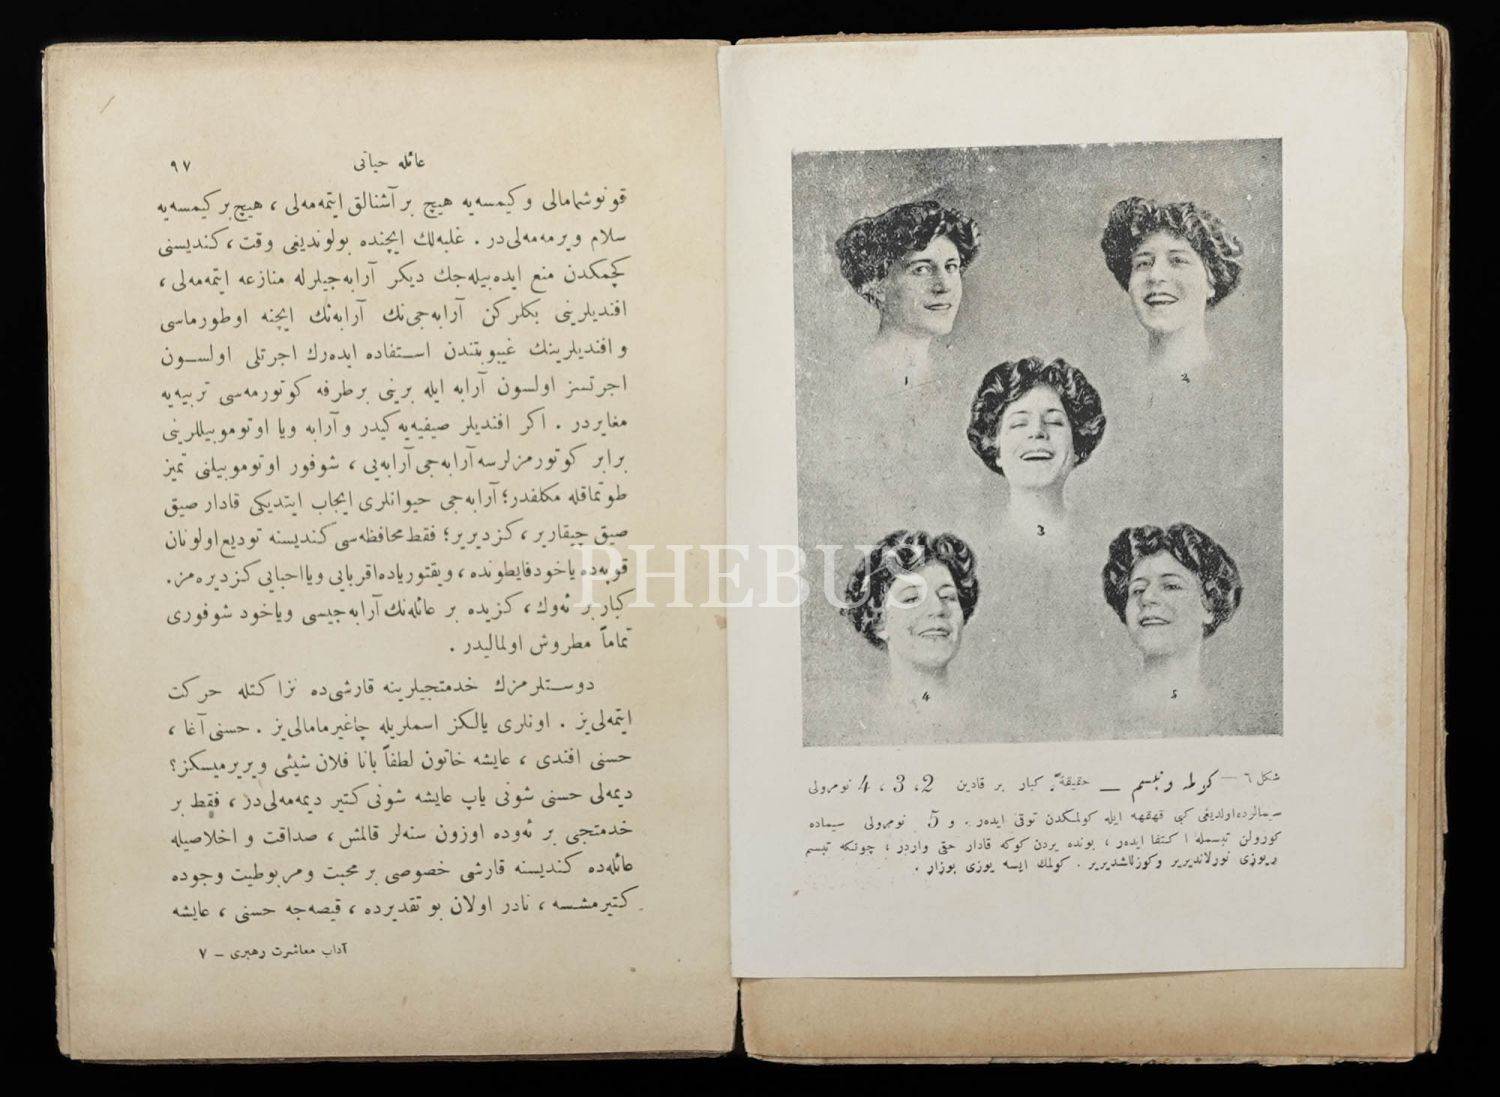 عائله حیاتی
٩٧
قونوشمامالی و کیمسه‌یه هیچ بر آشنالق ایتمه‌مه‌لی ، هیچ بر کیمسه‌یه
سلام ویرمه‌مه‌لی‌در . غلبه‌لك ایچنده بولوندیغی وقت ، کندیسنی
کچمکدن منع ایده‌بیله‌جك دیکر آرابه‌جیلرله منازعه ایتمه‌مه‌لی ،
افندیلرینی بکلرکن آرابه‌جی‌نك آرابه‌نك ایچنه اوطورماسی
و افندیلرینك غیبوبتندن استفاده ایده‌رك اجرتلی اولسون
اجرتسز اولسون آرابه ایله برینی بر طرفه کوتورمه‌سی تربیه‌یه
مغایردر . اکر افندیلر صیفیه‌یه کیدر و آرابه ویا اوتوموبیللرینی
برابر کوتورمزلرسه آرابه‌جی آرابه‌یی ، شوفور اوتوموبیلنی تمیز
طوتماقله مکلفدر ؛ آرابه‌جی حیوانلری ایجاب ایتدیکی قادار صیق
صیق چیقاریر ، کزدیریر ؛ فقط محافظه‌سی کندیسنه تودیع اولونان
قوپه‌ده یاخود فایطونده ، ویقتوریاده اقربایی ویا احبابی کزدیره‌مز .
کبار بر ئه‌وك ، کزیده بر عائله‌نك آرابه‌جیسی ویاخود شوفوری
تماماً مطروش اولمالیدر .
دوستلرمزك خدمتجیلرینه قارشی‌ده نزاکتله حرکت
ایتمه‌لی‌یز . اونلری یالکز اسملریله چاغیرمامالی‌یز . حسنی آغا ،
حسنی افندی ، عایشه خاتون لطفاً بانا فلان شیئی ویریرمیسکز ؟
دیمه‌لی حسنی شونی یاپ عایشه شونی کتیر دیمه‌مه‌لی‌در ، فقط بر
خدمتجی بر ئه‌وده اوزون سنه‌لر قالمش ، صداقت و اخلاصیله
عائله‌ده کندیسنه قارشی خصوصی بر محبت و مربوطیت وجوده
کتیرمشسه ، نادر اولان بو تقدیرده ، قیصه‌جه حسنی ، عایشه
آداب معاشرت رهبری – ٧
1
2
3
4
5
شکل ٦ – کولمه و تبسم — حقیقةً کبار بر قادین 2 ، 3 ، 4 نومرولی
سیمالرده اولدیغی کبی قهقهه ایله کولمکدن توقی ایدەر . و 5 نومرولی سیماده
کورولن تبسمله اکتفا ایدەر ، بونده یردن کوکه قادار حقی واردر ؛ چونکه تبسم
یوزی نورلاندیریر و کوزللشدیریر . کولمك ایسه یوزی بوزار .
PHEBUS